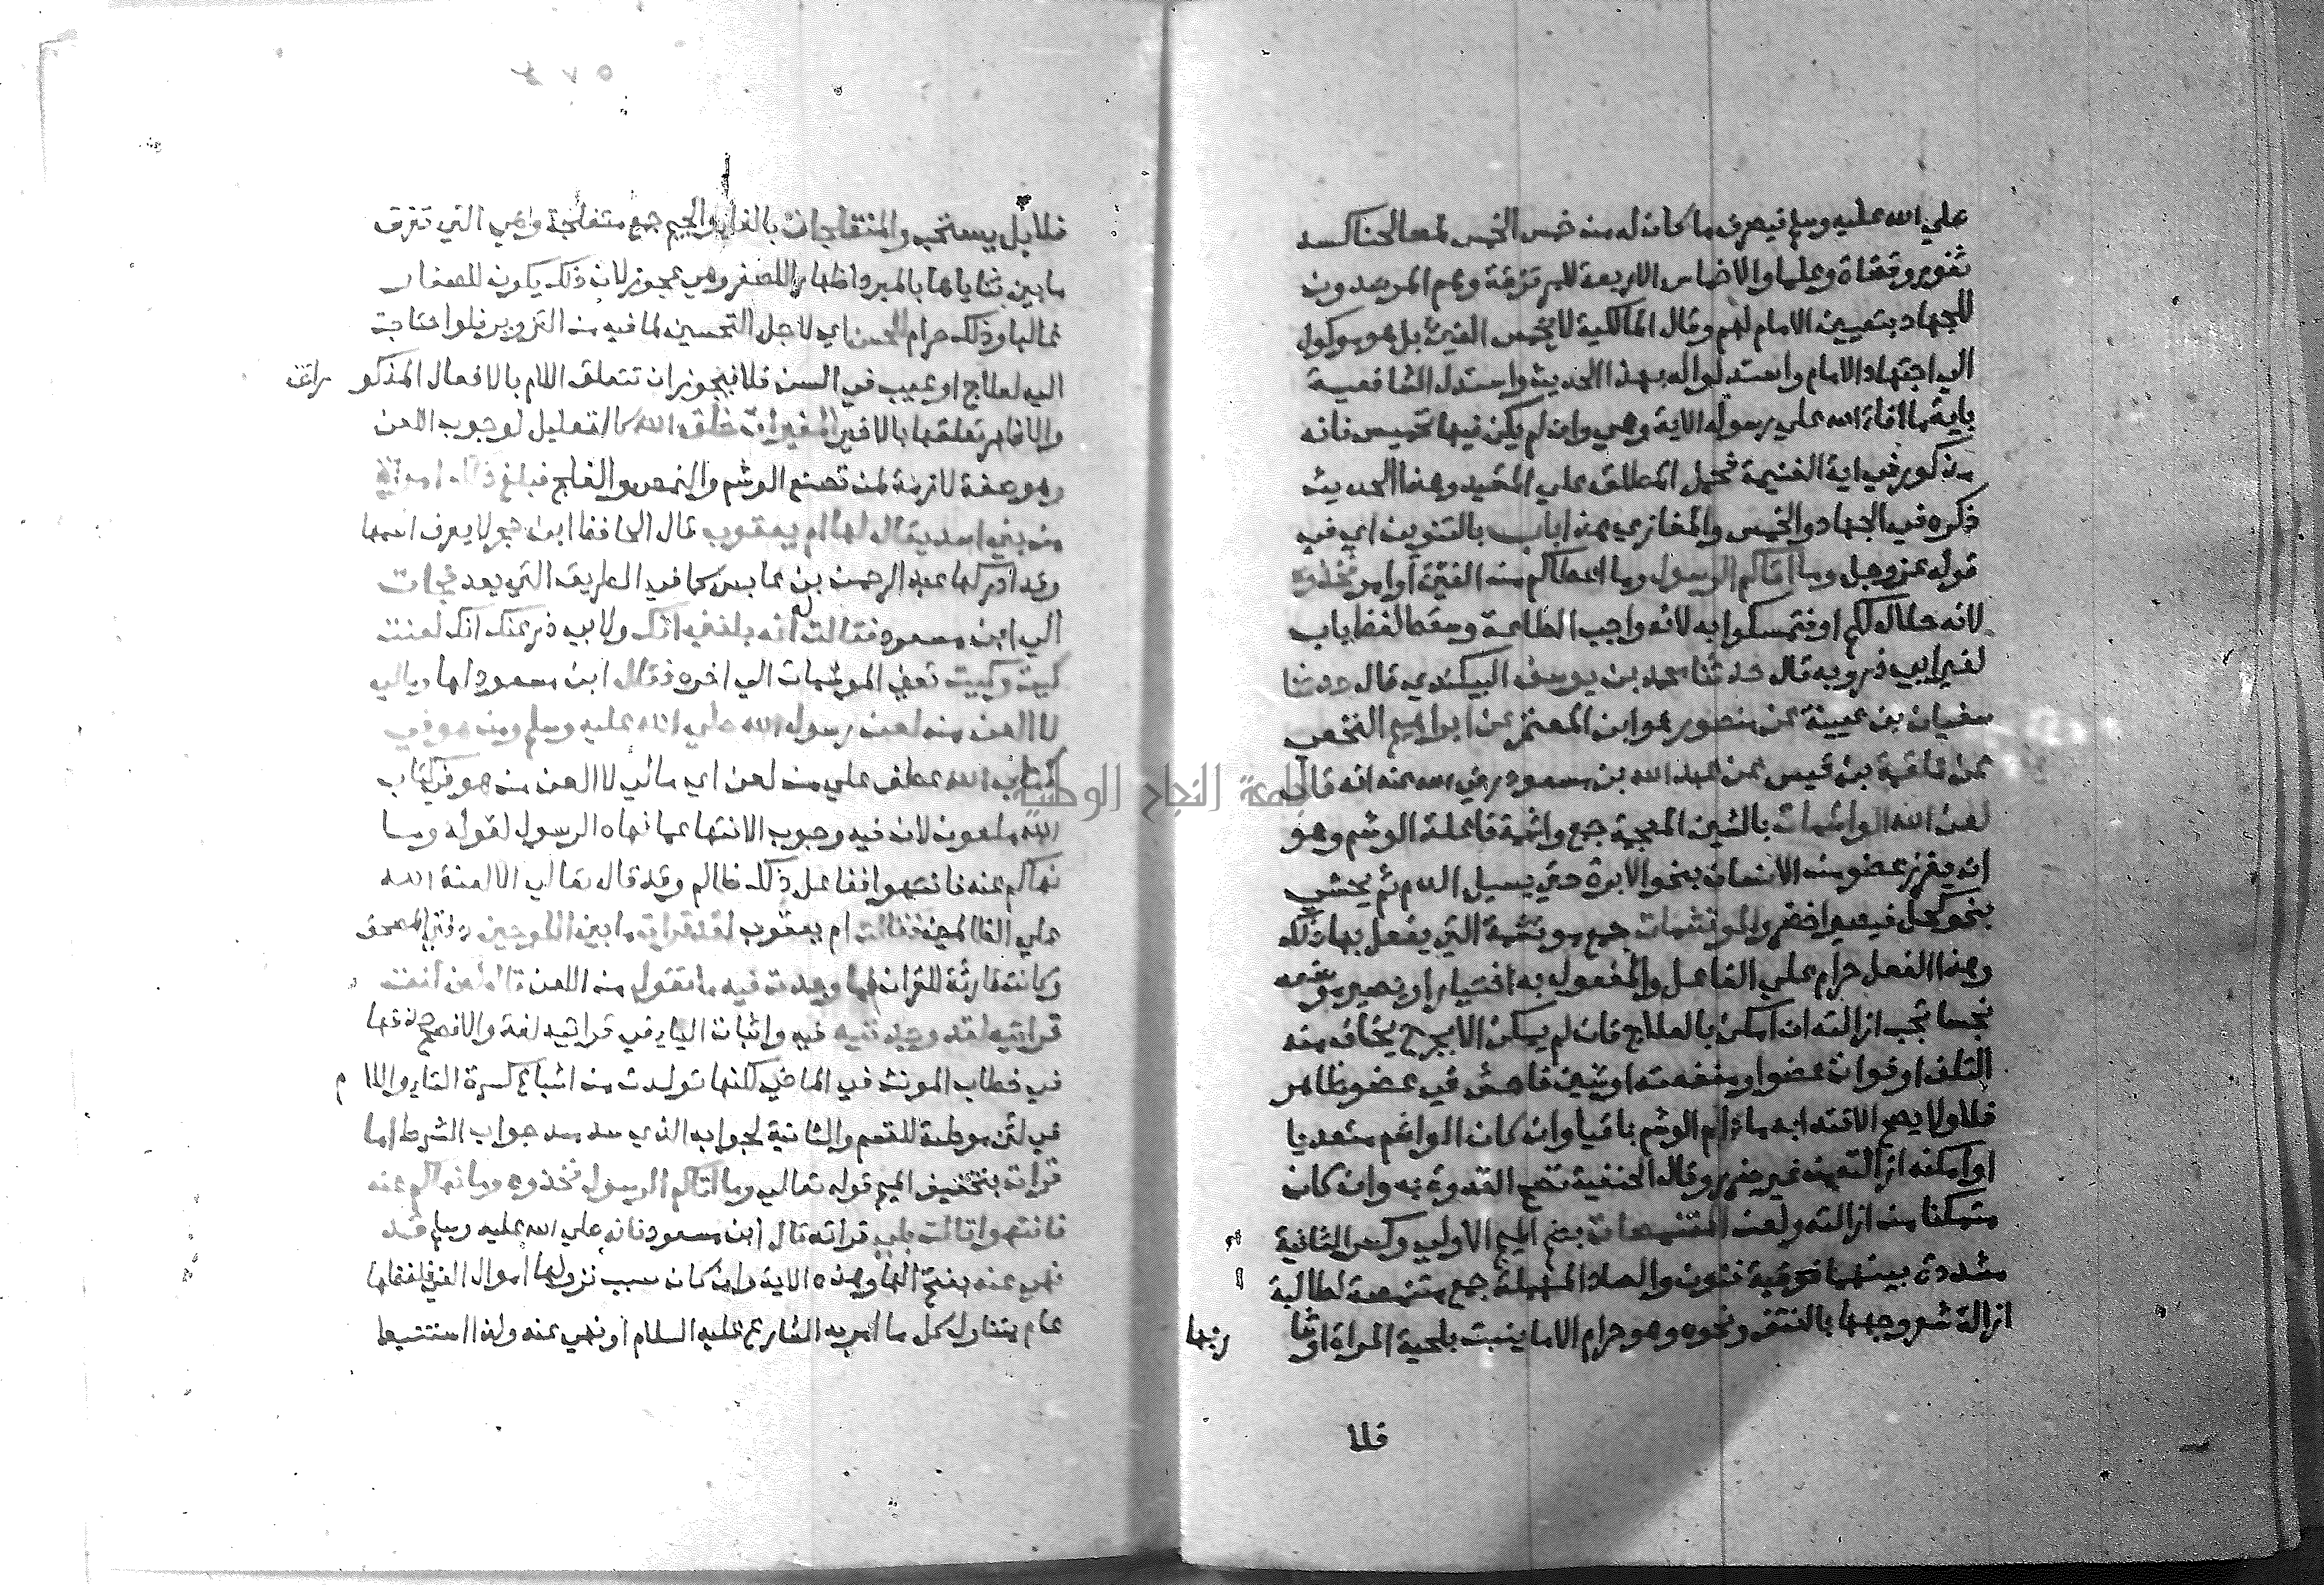 صلي الله عليه وسلم فيصرف ما كان له من خمس الخمس لمصالحنا كسد
ثغور وقضاة وعلما والاخماس الاربعة للمرتزقة وهم المرصدون
للجهاد بتعيين الامام لهم وقال المالكية لا يخمس الفيئ بل هو موكول
الي اجتهاد الامام واستدلوا له بهذا الحديث واستدل الشافعية
باية ما افاء الله علي رسوله الاية وهي وان لم يكن فيها تخميس فانه
مذكور في اية الغنيمة فحمل المطلق علي المقيد وهذا الحديث
ذكره في الجهاد والخمس والمغازي هذا باب بالتنوين اي في
قوله عز وجل وما اتاكم الرسول وما اعطاكم من الفيئ او امر فخذوه
لانه حلال لكم او فتمسكوا به لانه واجب الطاعة وسقط لفظ باب
لغير ابي ذر وبه قال حدثنا محمد بن يوسف البيكندي قال حدثنا
سفيان بن عيينة عن منصور هو ابن المعتمر عن ابراهيم النخعي
عن علقمة بن قيس عن عبد الله بن مسعود رضي الله عنه انه قال
لعن الله الواشمات بالشين المعجمة جمع واشمة فاعلة الوشم وهو
ان يغرز عضو من الانسان بنحو الابرة حتي يسيل الدم ثم يحشي
بنحو كحل فيصير اخضر والموتشمات جمع موتشمة التي يفعل بها ذلك
وهذا الفعل حرام علي الفاعل والمفعول به اختيارا ويصير موضعه
نجسا تجب ازالته ان امكن بالعلاج فان لم يمكن الا بجرح يخاف منه
التلف او فوات عضو او منفعته او شين فاحش في عضو ظاهر
فلا ولا يصح الاقتدا به ما دام الوشم باقيا وان كان الواشم متعديا
او امكنه ازالته من غير ضرر وقال الحنفية تصح القدوة به وان كان
متمكنا من ازالته ولعن المتنمصات بضم الميم الاولي وكسر الثانية
مشددة بينهما فوقية فنون والصاد المهملة جمع متنمصة لطالبة
ازالة شعر وجهها بالنتف ونحوه وهو حرام الا ما ينبت بلحية المراة او شا
ربها
فلا
فلا بل يستحب والمتفلجات بالفاء والجيم جمع متفلجة وهي التي تفرق
ما بين ثناياها بالمبرد اظهارا للصغر وهي عجوز لان ذلك يكون للصغار
غالبا وذلك حرام للحسن اي لاجل التحسين لما فيه من التزوير فلو احتاجت
اليه لعلاج او عيب في السن فلا فيجوز ان تتعلق اللام بالافعال المذكو رات
والاظهر تعلقها بالاخير المغيرات خلق الله كالتعليل لوجوب اللعن
وهو صفة لازمة لمن تصنع الوشم والنمص والفلج فبلغ ذلك امراة
من بني اسد يقال لها ام يعقوب قال الحافظ ابن حجر لا يعرف اسمها
وقد ادركها عبد الرحمن بن عابس كما في الطريق التي بعد فجات
الي ابن مسعود فقالت له انه بلغني انك ولابي ذر عنك انك لعنت
كيت وكيت تعني الموشمات الي اخره فقال ابن مسعود لها ومالي
لا العن من لعن رسول الله صلي الله عليه وسلم ومن هو في
كتاب الله عطف علي من لعن اي مالي لا العن من هو في كتاب
الله ملعون لان فيه وجوب الانتها عما نهاه الرسول لقوله وما
نهاكم عنه فانتهوا ففاعل ذلك ظالم وقد قال تعالي الا لعنة الله
علي الظالمين فقالت ام يعقوب لقد قرات ما بين اللوحين دفتي المصحف
وكانت قارئة للقران فما وجدت فيه ما تقول من اللعن قال لئن كنت
قراتيه لقد وجدتيه فيه واثبات الياء في قراتيه لغة والافصح حذفها
في خطاب المونث في الماضي لكنها تولدت من اشباع كسرة التاء واللام
في لئن موطية للقسم والثانية لجوابه الذي سد مسد جواب الشرط اما
قرات بتخفيف الميم قوله تعالي وما اتاكم الرسول فخذوه وما نهاكم عنه
فانتهوا قالت بلي قراته قال ابن مسعود فانه صلي الله عليه وسلم قد
نهي عنه بفتح الها وهذه الاية وان كان سبب نزولها اموال الفي فلفظها
عام يتناول كل ما امر به الشارع عليه السلام او نهي عنه ولذا استنبط
جامعة النجاح الوطنية